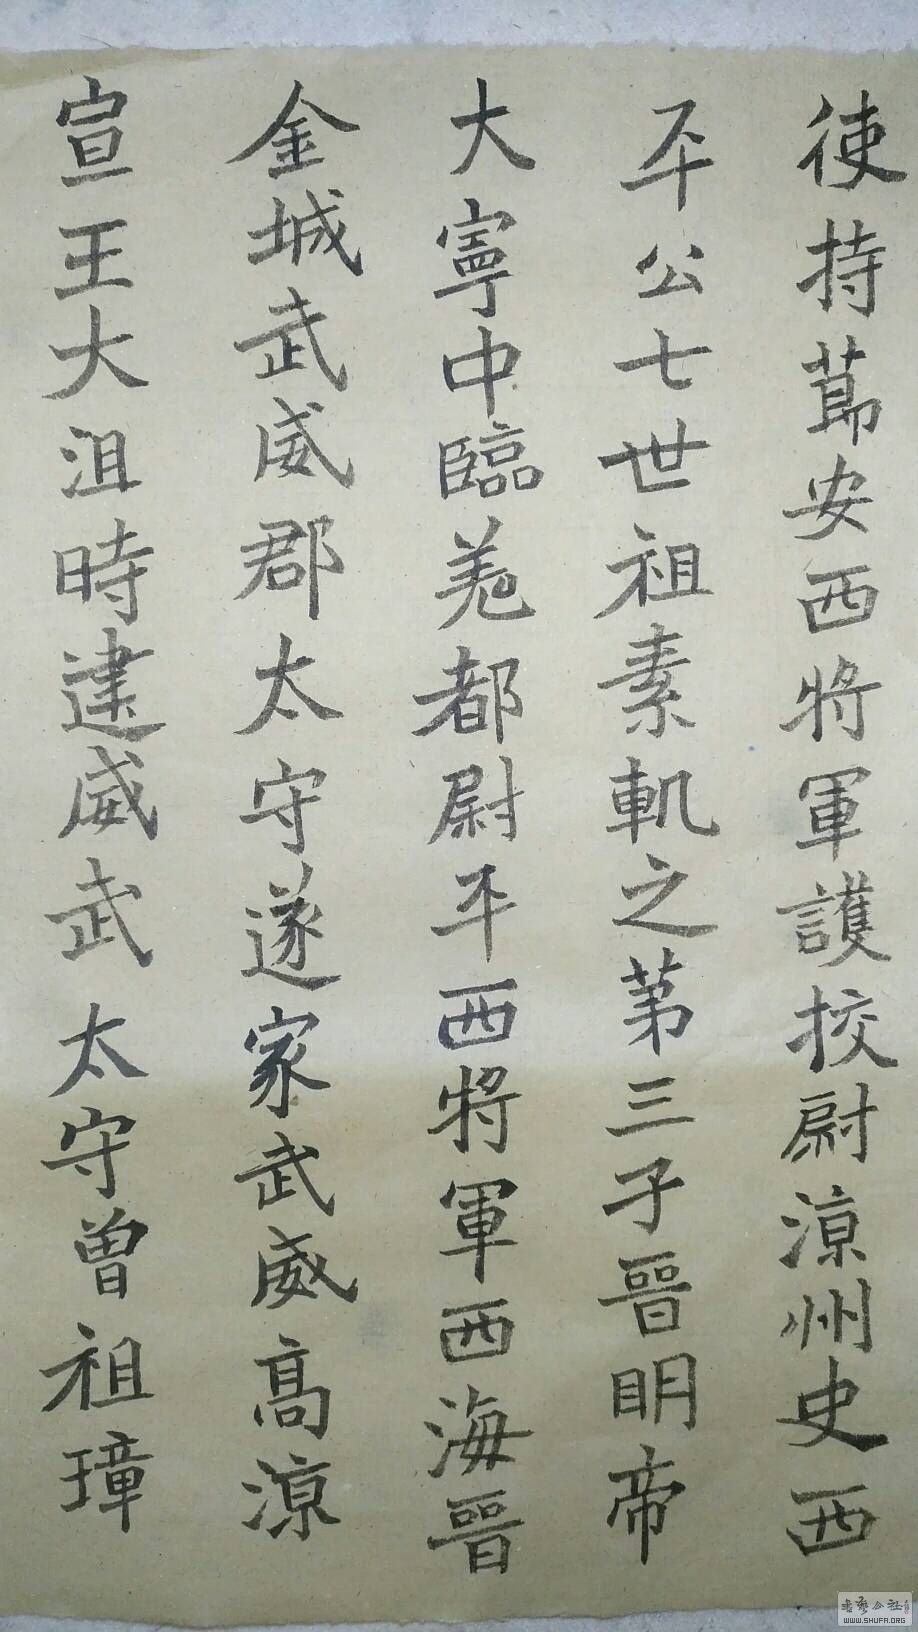 使持莭安西将軍護挍尉涼州史西
平公七世祖素軏之苐三子晉明帝
大寧中臨羌都尉平西将軍西海晉
金城武威郡太守遂家武威髙涼
宣王大沮時建威武太守曾祖璋
书艺公社
WWW.SHUFA.ORG